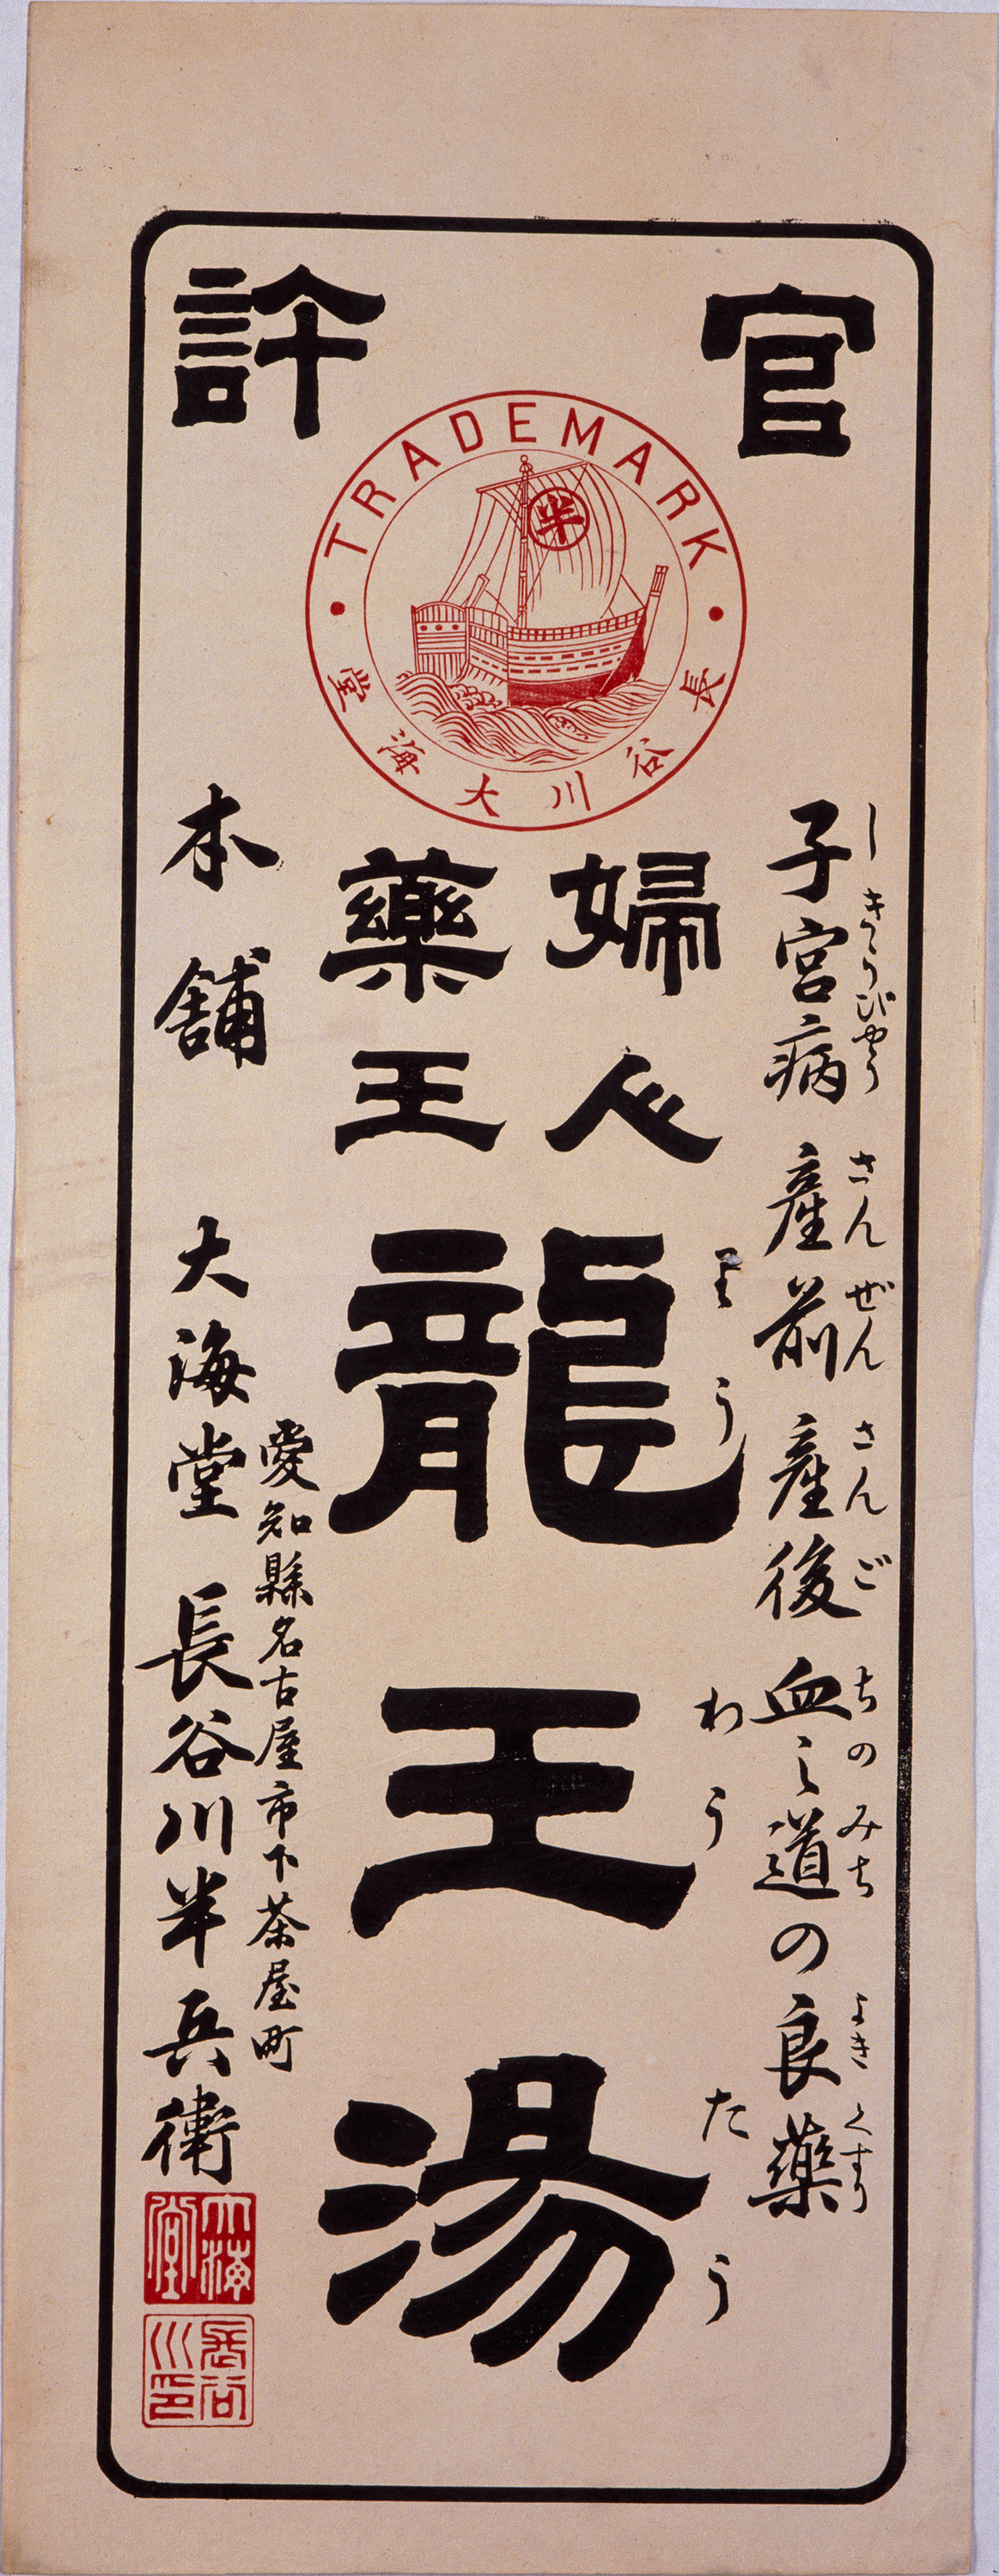 官許
TRADEMARK
半
長谷川大海堂
子宮病 産前 産後 血之道の良藥
しきうびやう さんぜん さんご ちのみち よきくすり
婦人
藥王
龍王湯
りうわうたう
愛知縣名古屋市下茶屋町
本舗 大海堂 長谷川半兵衛
大海堂
長谷川印